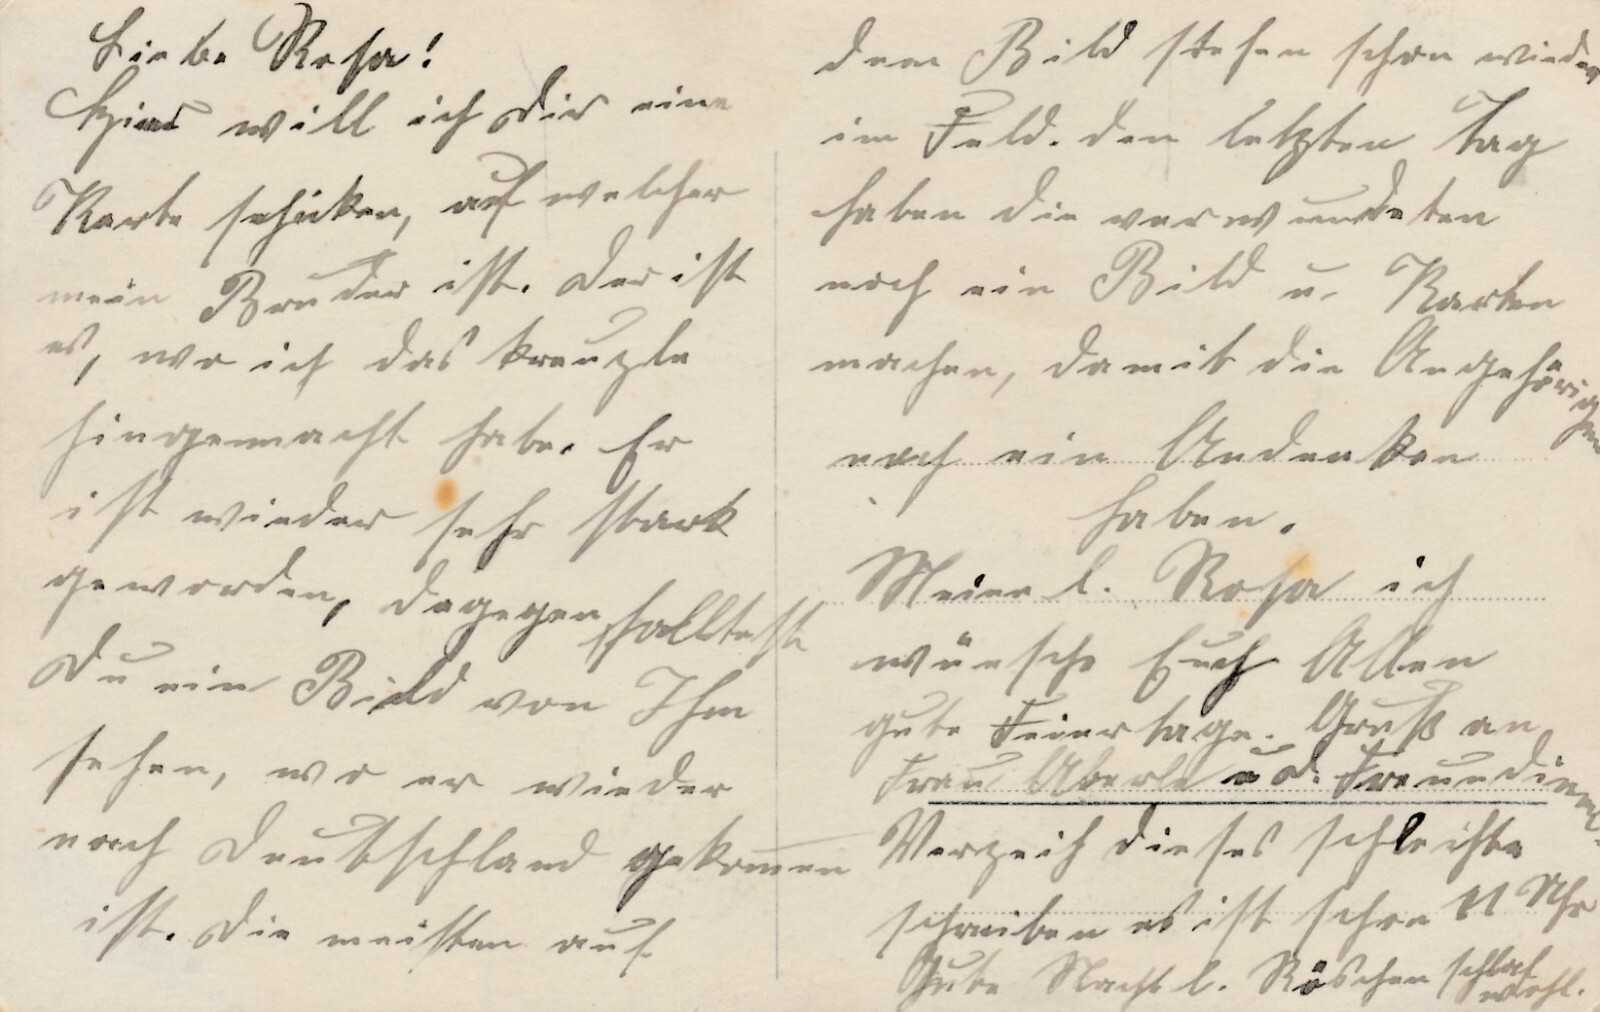 Liebe Rosa!
Hier will ich Dir eine
Karte schicken, auf welcher
mein Bruder ist. Der ist
es, wo ich das Kreuzle
hingemacht habe. Er
ist wieder sehr stark
geworden, dagegen solltest
Du ein Bild von Ihm
sehen, wo er wieder
nach Deutschland gekomen
ist. Die meisten auf
dem Bild stehen schon wieder
im Feld. den letzten Tag
haben die verwundeten
noch ein Bild u. Karten
machen, damit die Angehörigen
noch ein Andenken
haben.
Meine l. Rosa ich
wünsche Euch Allen
gute Feiertage. Gruß an
Frau Aberle u. d. Freundinen.
Verzeih dieses schlechte
schreiben es ist schon 11 Uhr
Gute Nacht l. Röschen schlaf
wohl.